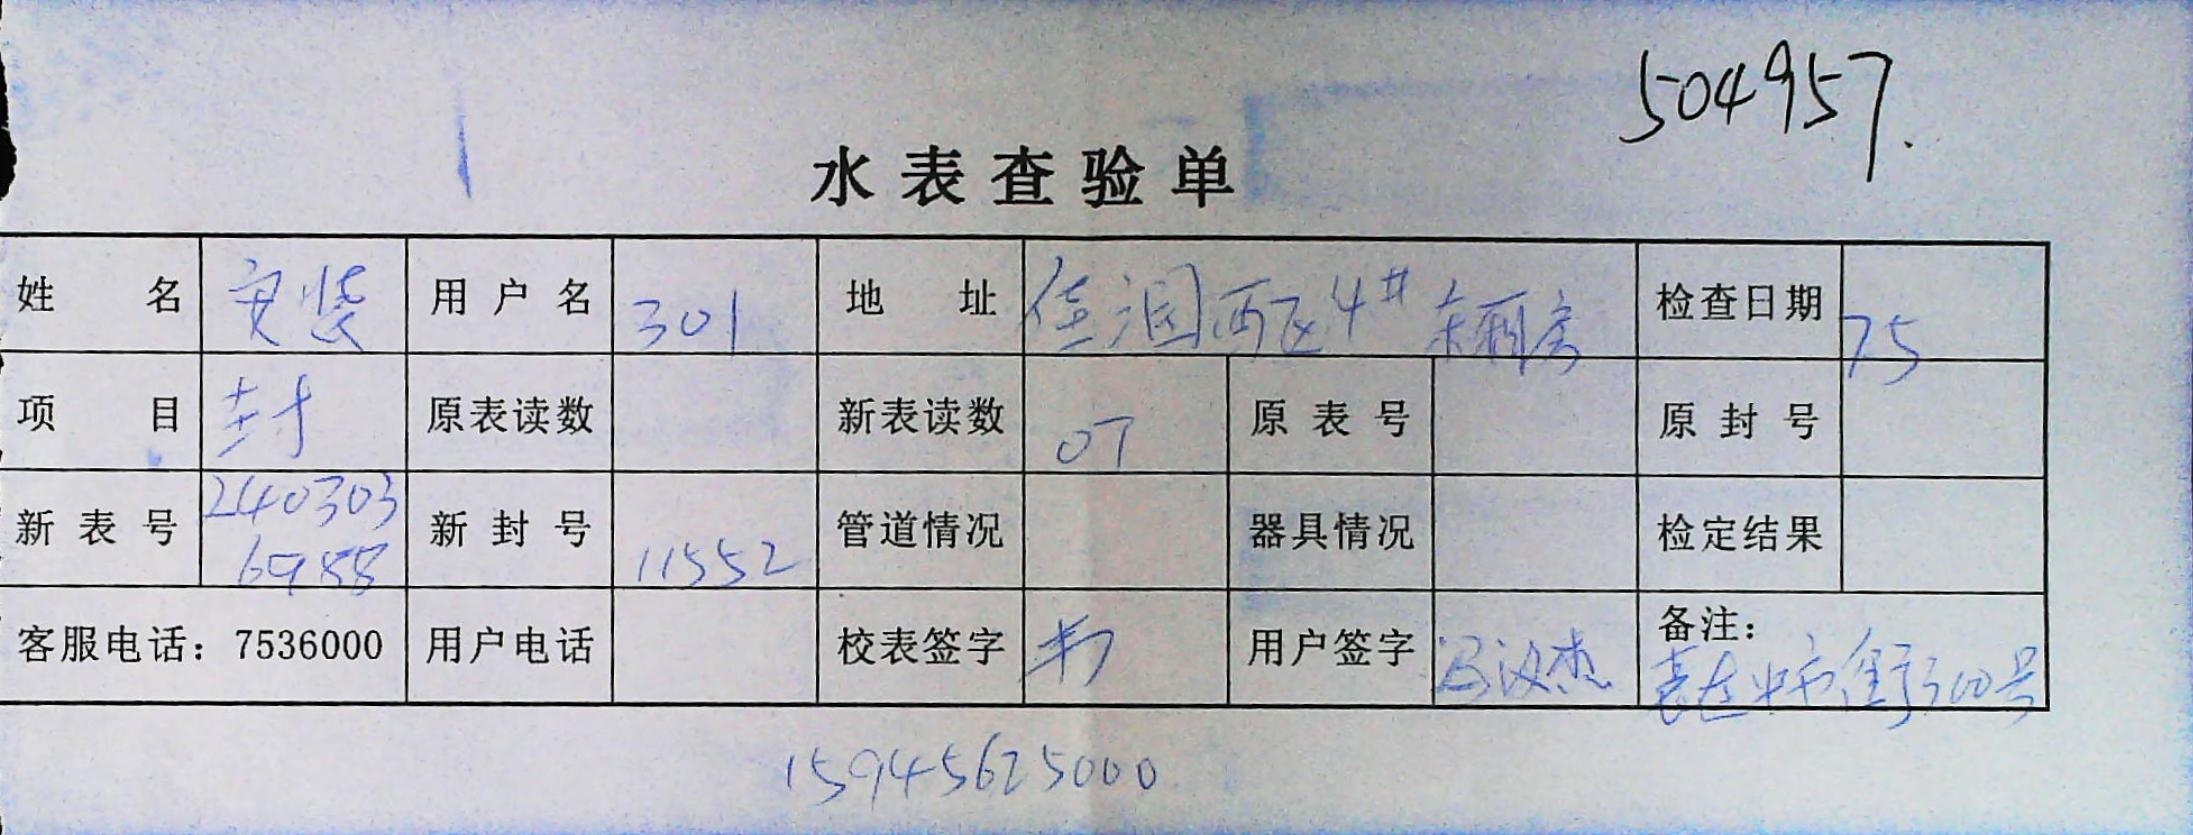 504957.
水表查验单
姓名 安装 用户名 301 地址 佳润西区4# 东厢房 检查日期 75
项目 封 原表读数 新表读数 07 原表号 原封号
新表号 240303 6988 新封号 11552 管道情况 器具情况 检定结果
客服电话：7536000 用户电话 校表签字 用户签字 冯汉杰 备注：
300号
15945625000